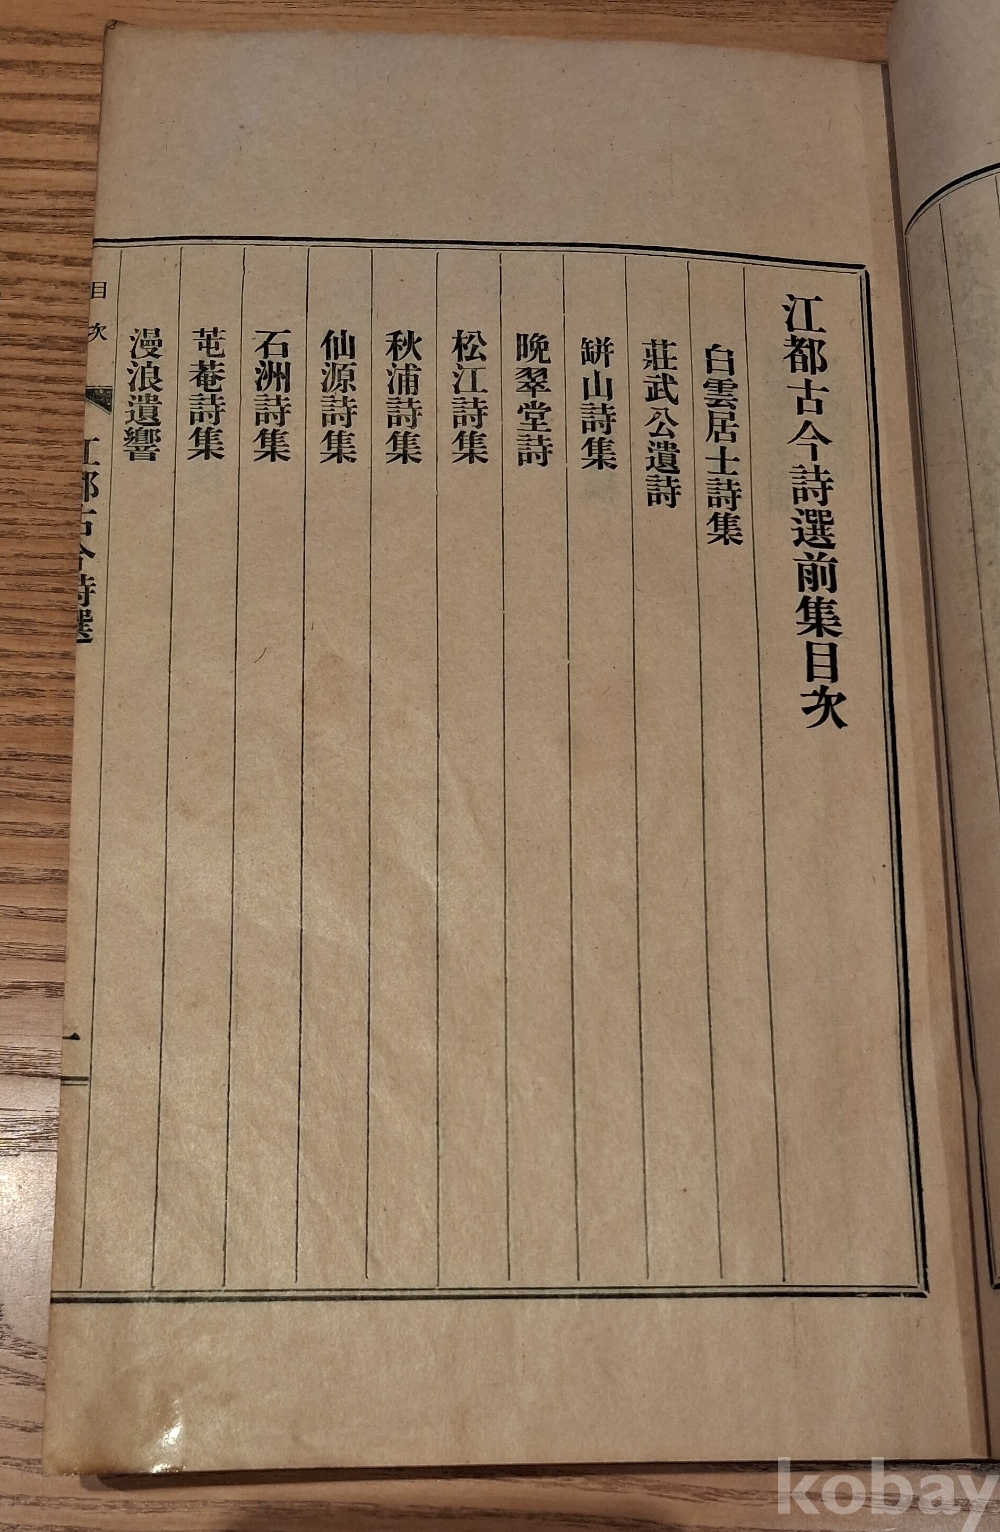 江都古今詩選前集目次
白雲居士詩集
莊武公遺詩
缾山詩集
晚翠堂詩
松江詩集
秋浦詩集
仙源詩集
石洲詩集
芚菴詩集
漫浪遺響
目次
江都古今詩選
一
kobay